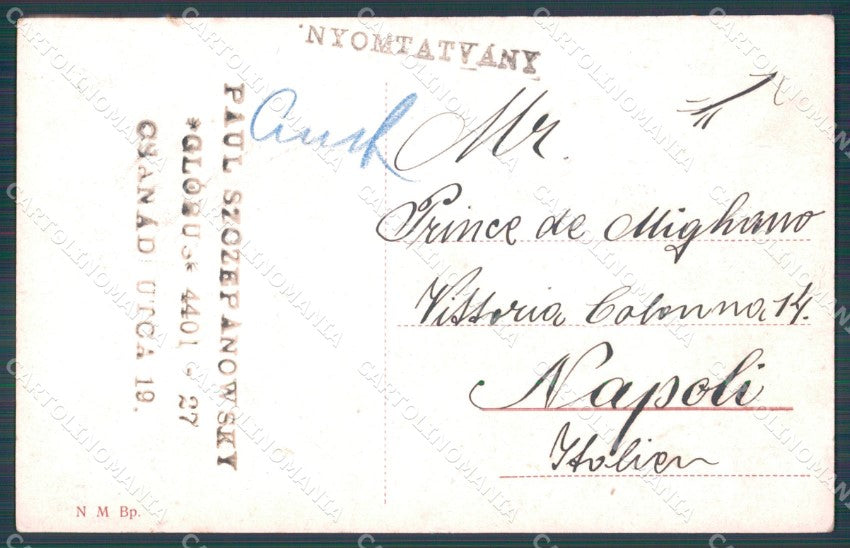 NYOMTATVÁNY
PAUL SZCZEPANOWSKY
*GLÓBUS* 4401 - 27
CSANÁD UTCA 19.
Mr.
Prince de Mighano
Vittoria Colonna 14.
Napoli
Italien
N M Bp.
CARTOLINOMANIA